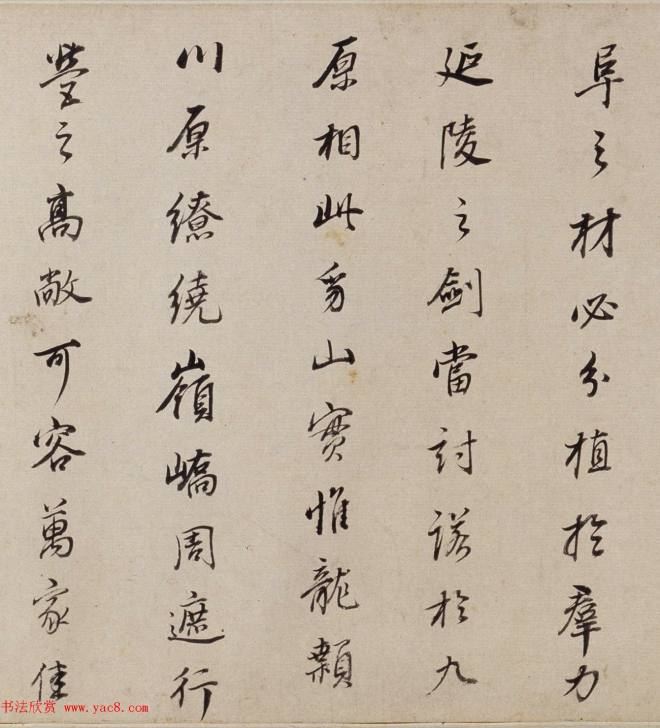 阜之材必分植於羣力
延陵之劍當討諾於九
原相此山實惟龍顙
川原繚繞嶺嶠周遮行
塋之高敞可容萬家佳
书法欣赏 www.yac8.com